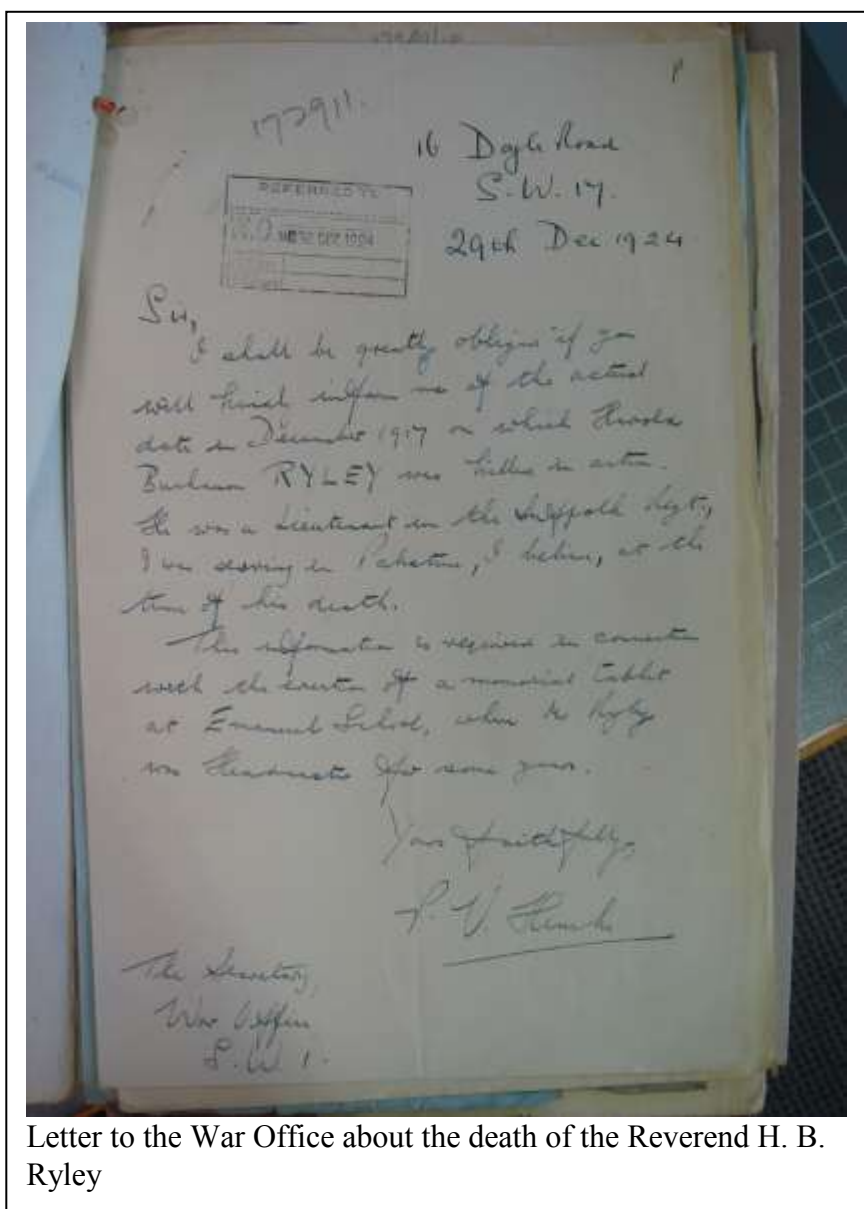 172911.
16 Doyle Road
S.W. 17.
29th Dec 1924
REFERRED TO
DEC 1924
Sir,
I shall be greatly obliged if you
will kindly inform me of the actual
date in December 1917 on which Harold
Buchanan RYLEY was killed in action.
He was a Lieutenant in the Suffolk Regt.,
& was serving in Palestine, I believe, at the
time of his death.
This information is required in connection
with the erection of a memorial tablet
at Emanuel School, where Mr Ryley
was Headmaster for some years.
Yours faithfully,
P. V.
The Secretary,
War Office
S.W.1.
Letter to the War Office about the death of the Reverend H. B.
Ryley